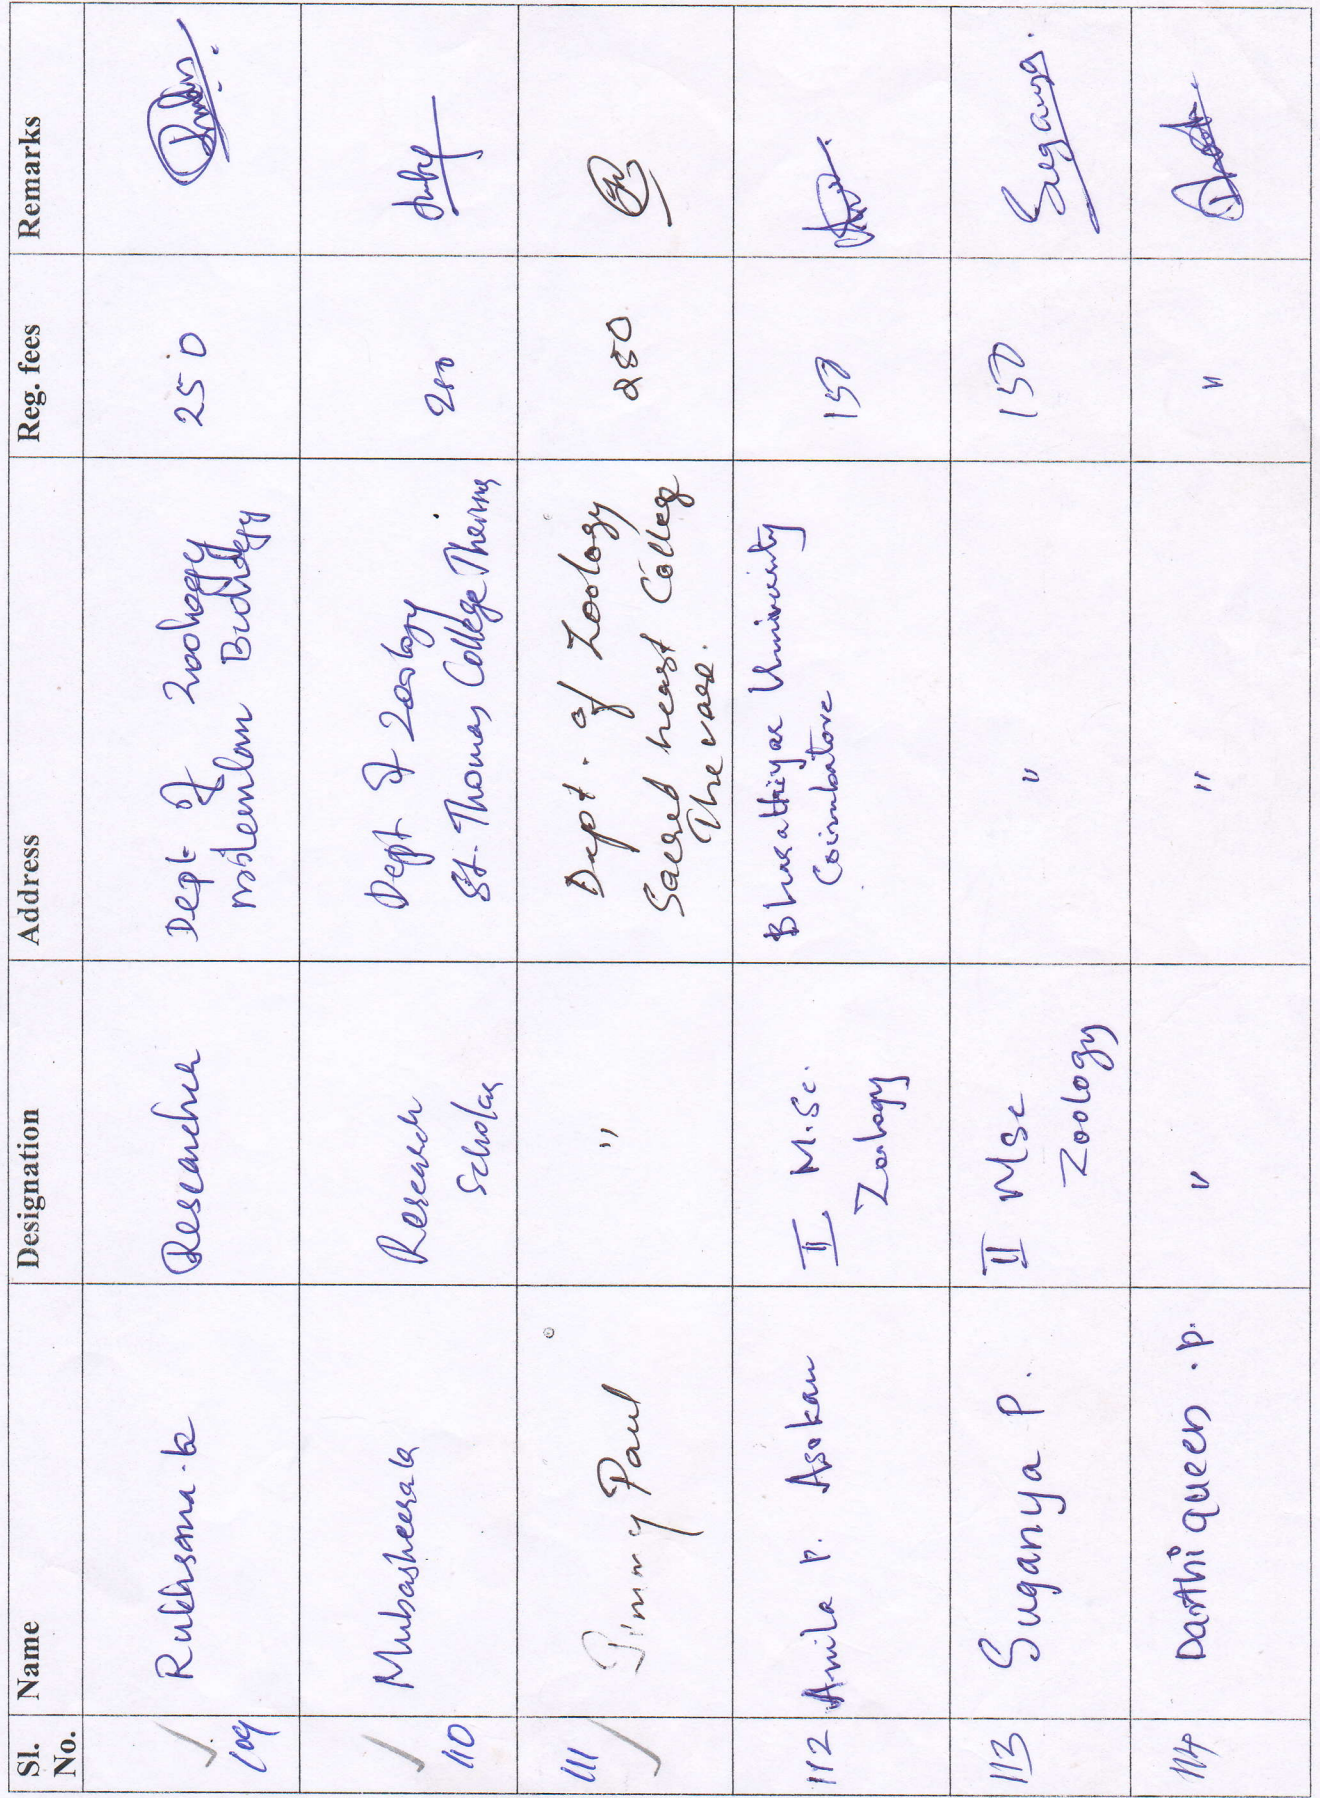 Sl. No. Name Designation Address Reg. fees Remarks
109 Rukhsana.k Researcher Dept of Zoology 250
110 Mubasheera k Research Scholar Dept of Zoology St. Thomas College 250
111 Jimmy Paul " Dept. of Zoology Sacred heart College Thevara. 250
112 Anila P. Asokan II M.Sc. Zoology Bharathiyar University Coimbatore 150
113 Suganya P. II MSc Zoology " 150 Suganya.
114 Darthi queen .p. " " "